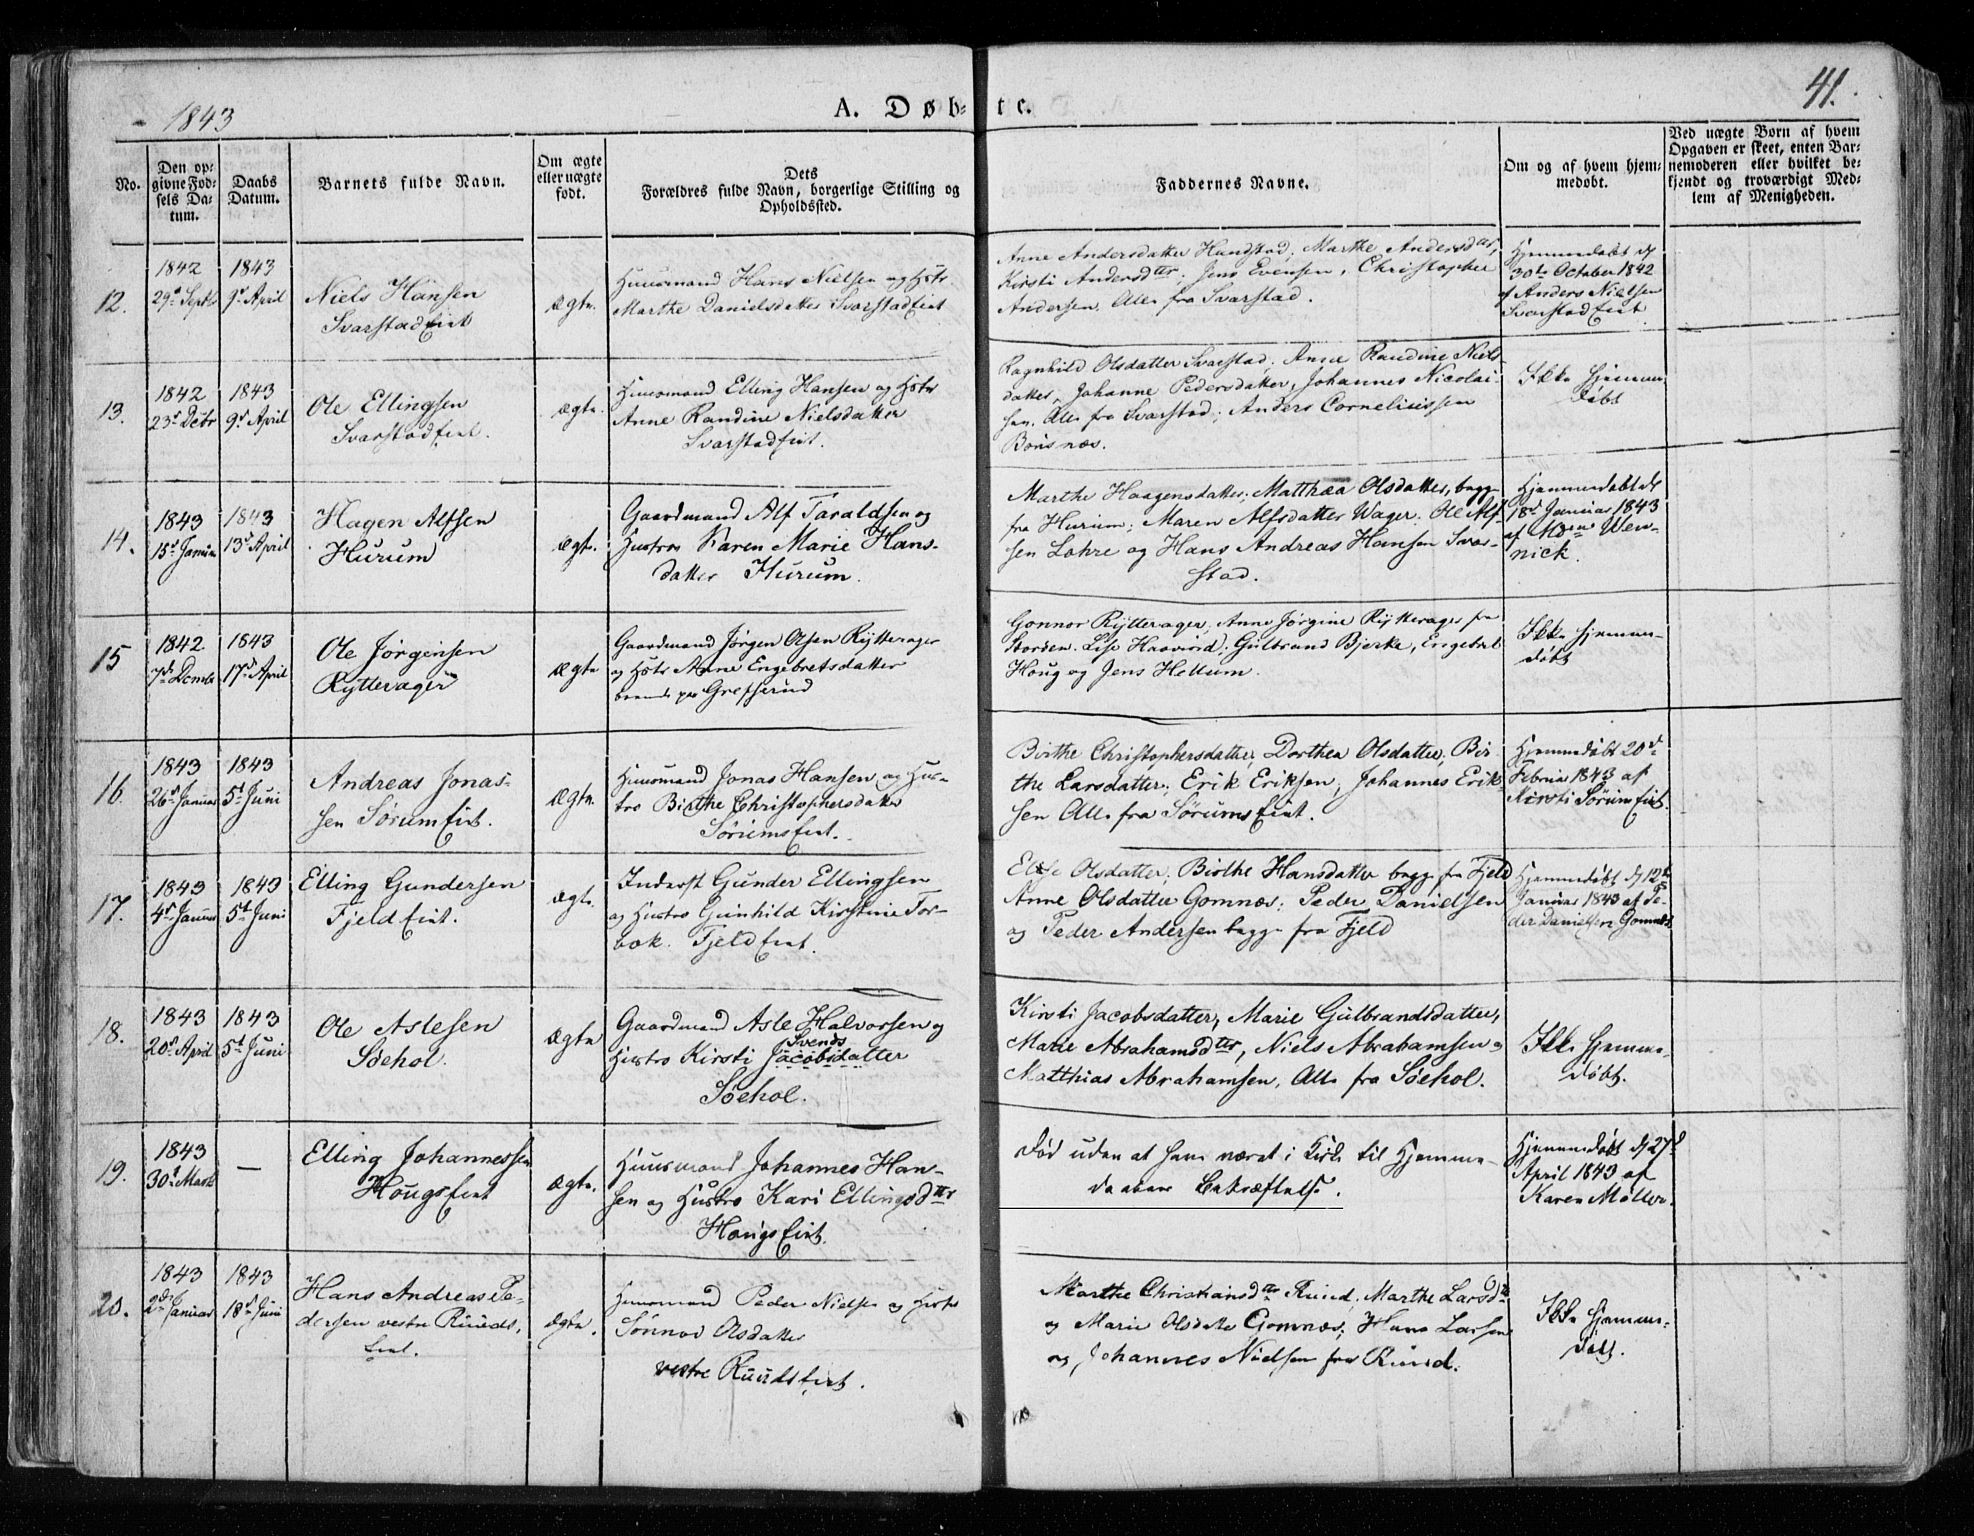 1843
A. Døbte.
41.
No.
Den opgivne Fødsels Datum.
Daabs Datum.
Barnets fulde Navn.
Om ægte eller uægte født.
Dets Forældres fulde Navn, borgerlige Stilling og Opholdssted.
Faddernes Navne.
Om og af hvem hjemmedøbt.
Ved uægte Børn af hvem Opgaven er skeet, enten Barnemoderen eller hvilket bekjendt og troværdigt Medlem af Menigheden.
12.
1842
29d Septbr
1843
9d April
Niels Hansen
Svarstadeiet
Ægte.
Huusmand Hans Nielsen og Hstr
Marthe Danielsdatter Svarstadeiet
Anne Andersdatter Hundstad, Marthe Andersdtr,
Kirsti Andersdtr. Jens Evensen, Christopher
Andersen. Alle fra Svarstad.
Hjemmedøbt d
30te October 1842
af Anders Nielsen
Svarstadeiet
13.
1842
23d Dcbr
1843
9d April
Ole Ellingsen
Svarstadeiet.
Ægte.
Huusmand Elling Hansen og Hstr
Anne Randine Nielsdatter
Svarstadeiet.
Ragnhild Olsdatter Svarstad, Anne Randine Niels
datter, Johanne Pedersdatter, Johannes Nicolai-
sen. Alle fra Svarstad, Anders Corneliussen
Bønsnæs.
Ikke Hjemme
døbt
14.
1843
15d Januar
1843
13d April
Hagen Alfsen
Hurum
Ægte.
Gaardmand Alf Taraldsen og
Hustro Karen Marie Hans-
datter Hurum.
Marthe Haagensdatter, Matthea Olsdatter, begge
fra Hurum; Maren Alfsdatter Wager. Ole Alf-
sen Lohre og Hans Andreas Hansen Svar-
stad.
Hjemmedøbt d
18d Januar 1843
af Wen-
nick.
15
1842
7d Decmbr
1843
17d April
Ole Jørgensen
Rytterager
Ægte
Gaardmand Jørgen Olsen Rytterager
og Hstr Anne Engebretsdatter
boende paa Gresserud
Gonnor Rytterager, Anne Jørgine Rytterager fra
Storöen. Lise Haavind; Gulbrand Bjerke, Engebret
Houg og Jens Hellum.
Ikke Hjemme-
døbt
16.
1843
26d Januar
1843
5t Juni
Andreas Jonas-
sen Sørumeiet.
Ægte.
Huusmand Jonas Hansen og Hus-
tro Birthe Christophersdatter
Sørumseiet.
Birthe Christophersdatter, Dorthea Olsdatter, Bir
the Larsdatter; Erik Eriksen, Johannes Erik-
sen Alle fra Sørumseiet.
Hjemmedøbt 20d
Februar 1843 af
Kirsti Sørumseiet.
17.
1843
4d Januar
1843
5t Juni
Elling Gundersen
Fjeldeiet.
Ægte.
Inderst Gunder Ellingsen
og Hustro Gunhild Kirstine Tor-
bok. Fjeldeiet.
Else Olsdatter, Birthe Hansdatter begge fra Fjeld
Anne Olsdatter Gomnæs; Peder Danielsen
og Peder Andersen begge fra Fjeld
Hjemmedøbt d 12te
Januar 1843 af Pe-
der Danielsen Gomnæs
18.
1843
20d April
1843
5t Juni
Ole Aslesen
Söehol.
Ægte
Gaardmand Asle Halvorsen og
Svends
Hustro Kirsti Jacobsdatter
Söehol.
Kirsti Jacobsdatter, Marie Gulbrandsdatter,
Marie Abrahamsdtr, Niels Abrahamsen og
Matthias Abrahamsen, Alle fra Söehol.
Ikke Hjemme-
døbt.
19.
1843
30d Marts
—
Elling Johannessen
Hougseiet
Ægte.
Huusmand Johannes Han-
sen og Hustro Kari Ellingsdtr
Hougseiet.
Død uden at have været i Kirke til Hjemme-
daabens Bekræftelse.
Hjemmedøbt d 27d
April 1843 af
Karen Møller.
20.
1843
2den Januar
1843
18d Juni
Hans Andreas Pe-
dersen vestre Ruuds-
eiet.
Ægte.
Huusmand Peder Nielsen og Hustr
Sønnov Olsdatter
vestre Ruudseiet.
Marthe Christiansdtr Ruud, Marthe Larsdtr
og Marie Olsdatter Gomnæs; Hans Larsen
og Johannes Nielsen fra Ruud.
Ikke Hjemme-
døbt.